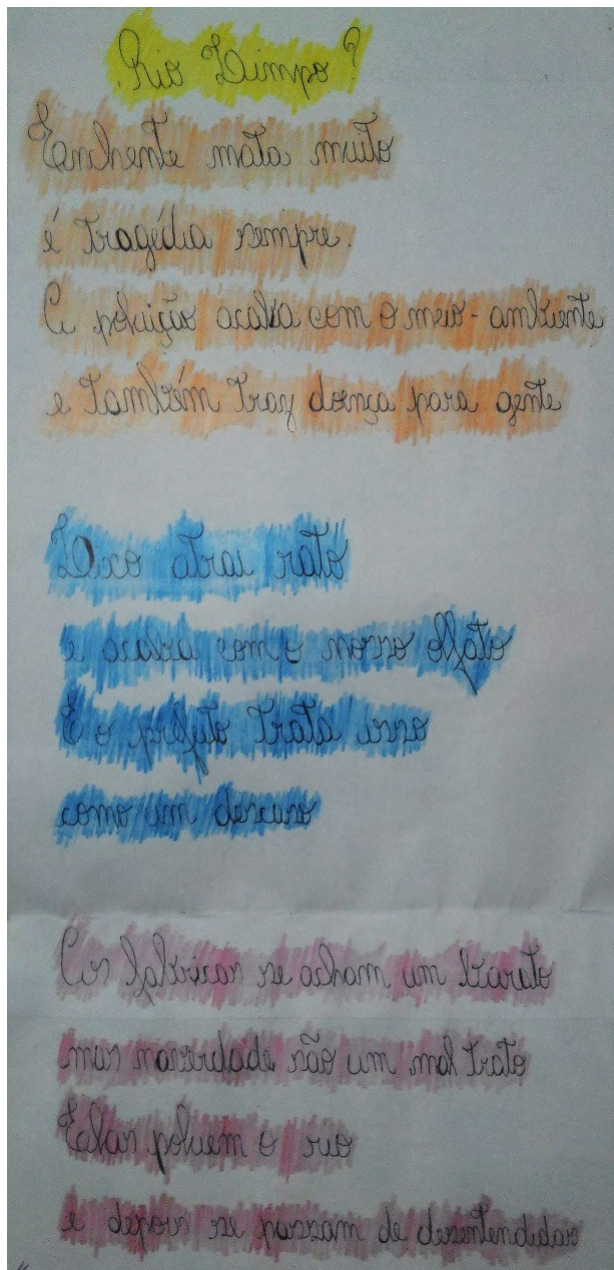 Rio Limpo?
Enchente mata muito
é tragédia sempre.
A poluição acaba com o meio-ambiente
e também traz doença para gente
Lixo atrai rato
e acaba com o nosso olfato
E o prefeito trata isso
como um descuso
As fabricas se acham um barato
mas na verdade são um mal trato
Elas poluem o rio
e depois se passam de desentendidas